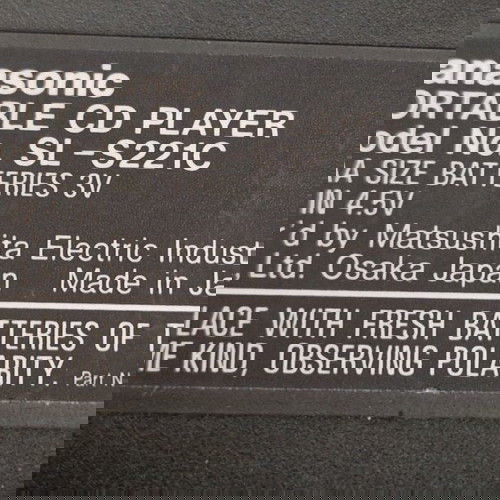 anasonic
ORTABLE CD PLAYER
odel No. SL-S221C
A SIZE BATTERIES 3V
IN 4.5V
d by Matsushita Electric Indust
Ltd. Osaka Japan Made in Ja
LACE WITH FRESH BATTERIES OF
KIND, OBSERVING POLARITY. Part N